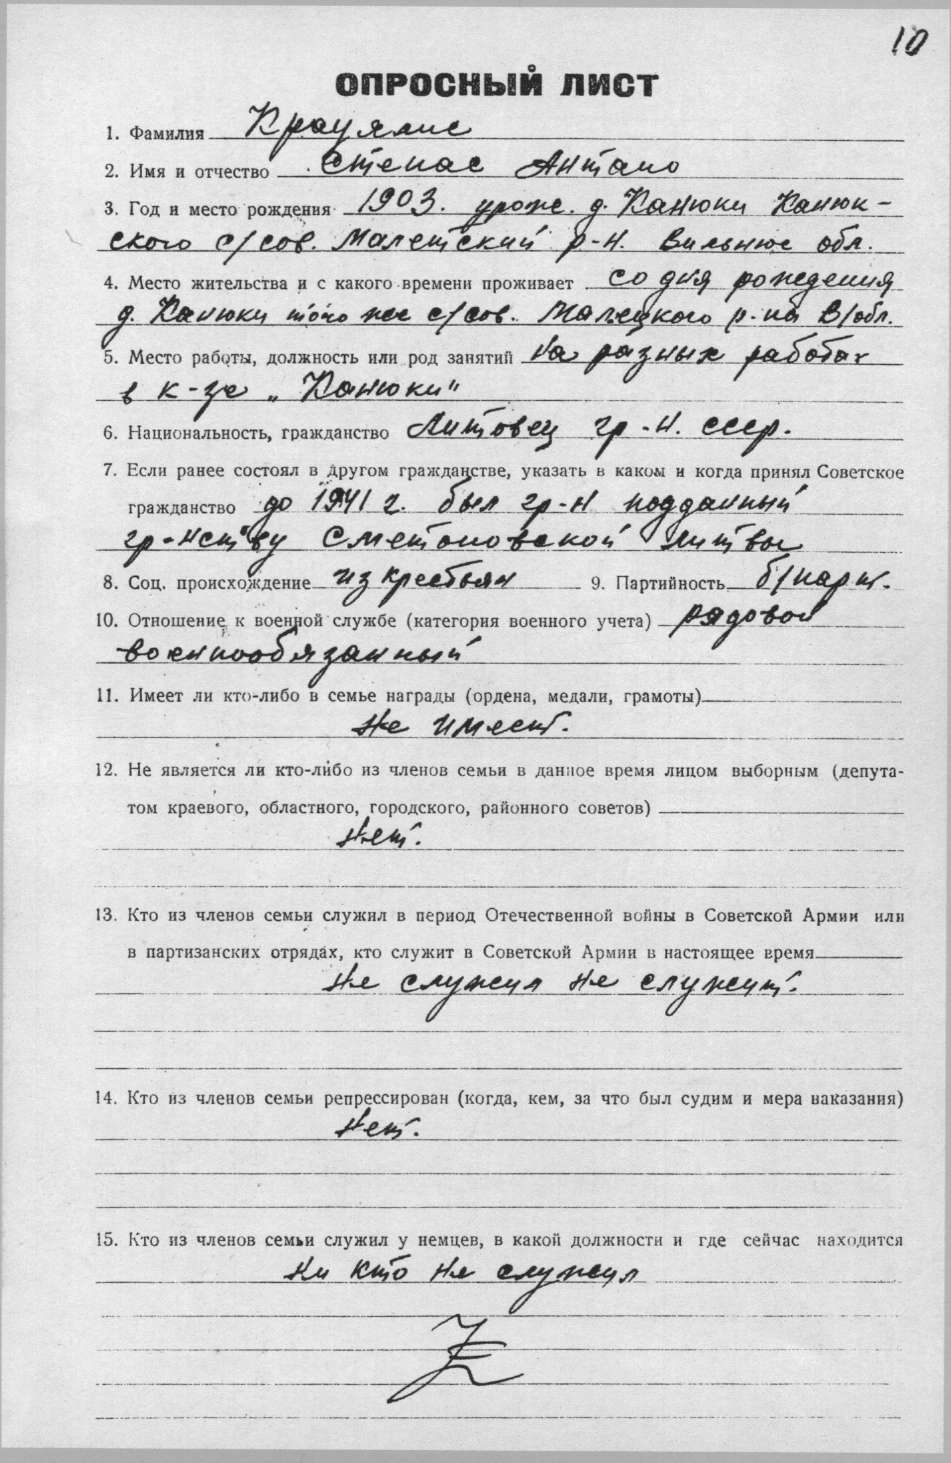 10
ОПРОСНЫЙ ЛИСТ
1. Фамилия Крауялис
2. Имя и отчество Степас Антано
3. Год и место рождения 1903. урож. д. Канюки Канюк-
ского с/сов. Малетский р-н. Вильнюс обл.
4. Место жительства и с какого времени проживает со дня рождения
д. Канюки того же с/сов. Малецкого р-на В/обл.
5. Место работы, должность или род занятий на разных работах
в к-зе „Канюки"
6. Национальность, гражданство Литовец гр-н. ссср.
7. Если ранее состоял в другом гражданстве, указать в каком и когда принял Советское
гражданство до 1941 г. был гр-н подданный
гр-нству Сметоновской Литвы
8. Соц. происхождение из крестьян 9. Партийность б/парт.
10. Отношение к военной службе (категория военного учета) рядовой
военнообязанный
11. Имеет ли кто-либо в семье награды (ордена, медали, грамоты)
Не имеет.
12. Не является ли кто-либо из членов семьи в данное время лицом выборным (депута-
том краевого, областного, городского, районного советов)
Нет.
13. Кто из членов семьи служил в период Отечественной войны в Советской Армии или
в партизанских отрядах, кто служит в Советской Армии в настоящее время
Не служил не служит.
14. Кто из членов семьи репрессирован (когда, кем, за что был судим и мера наказания)
Нет.
15. Кто из членов семьи служил у немцев, в какой должности и где сейчас находится
Ни кто не служил